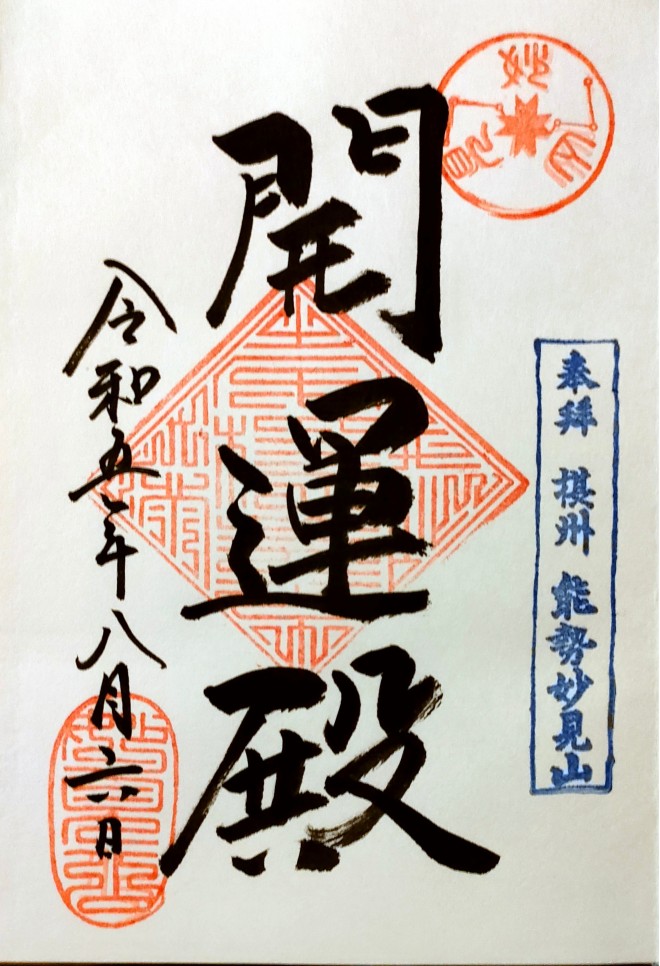 奉拝 摂州 能勢妙見山
開運殿
令和五年八月六日